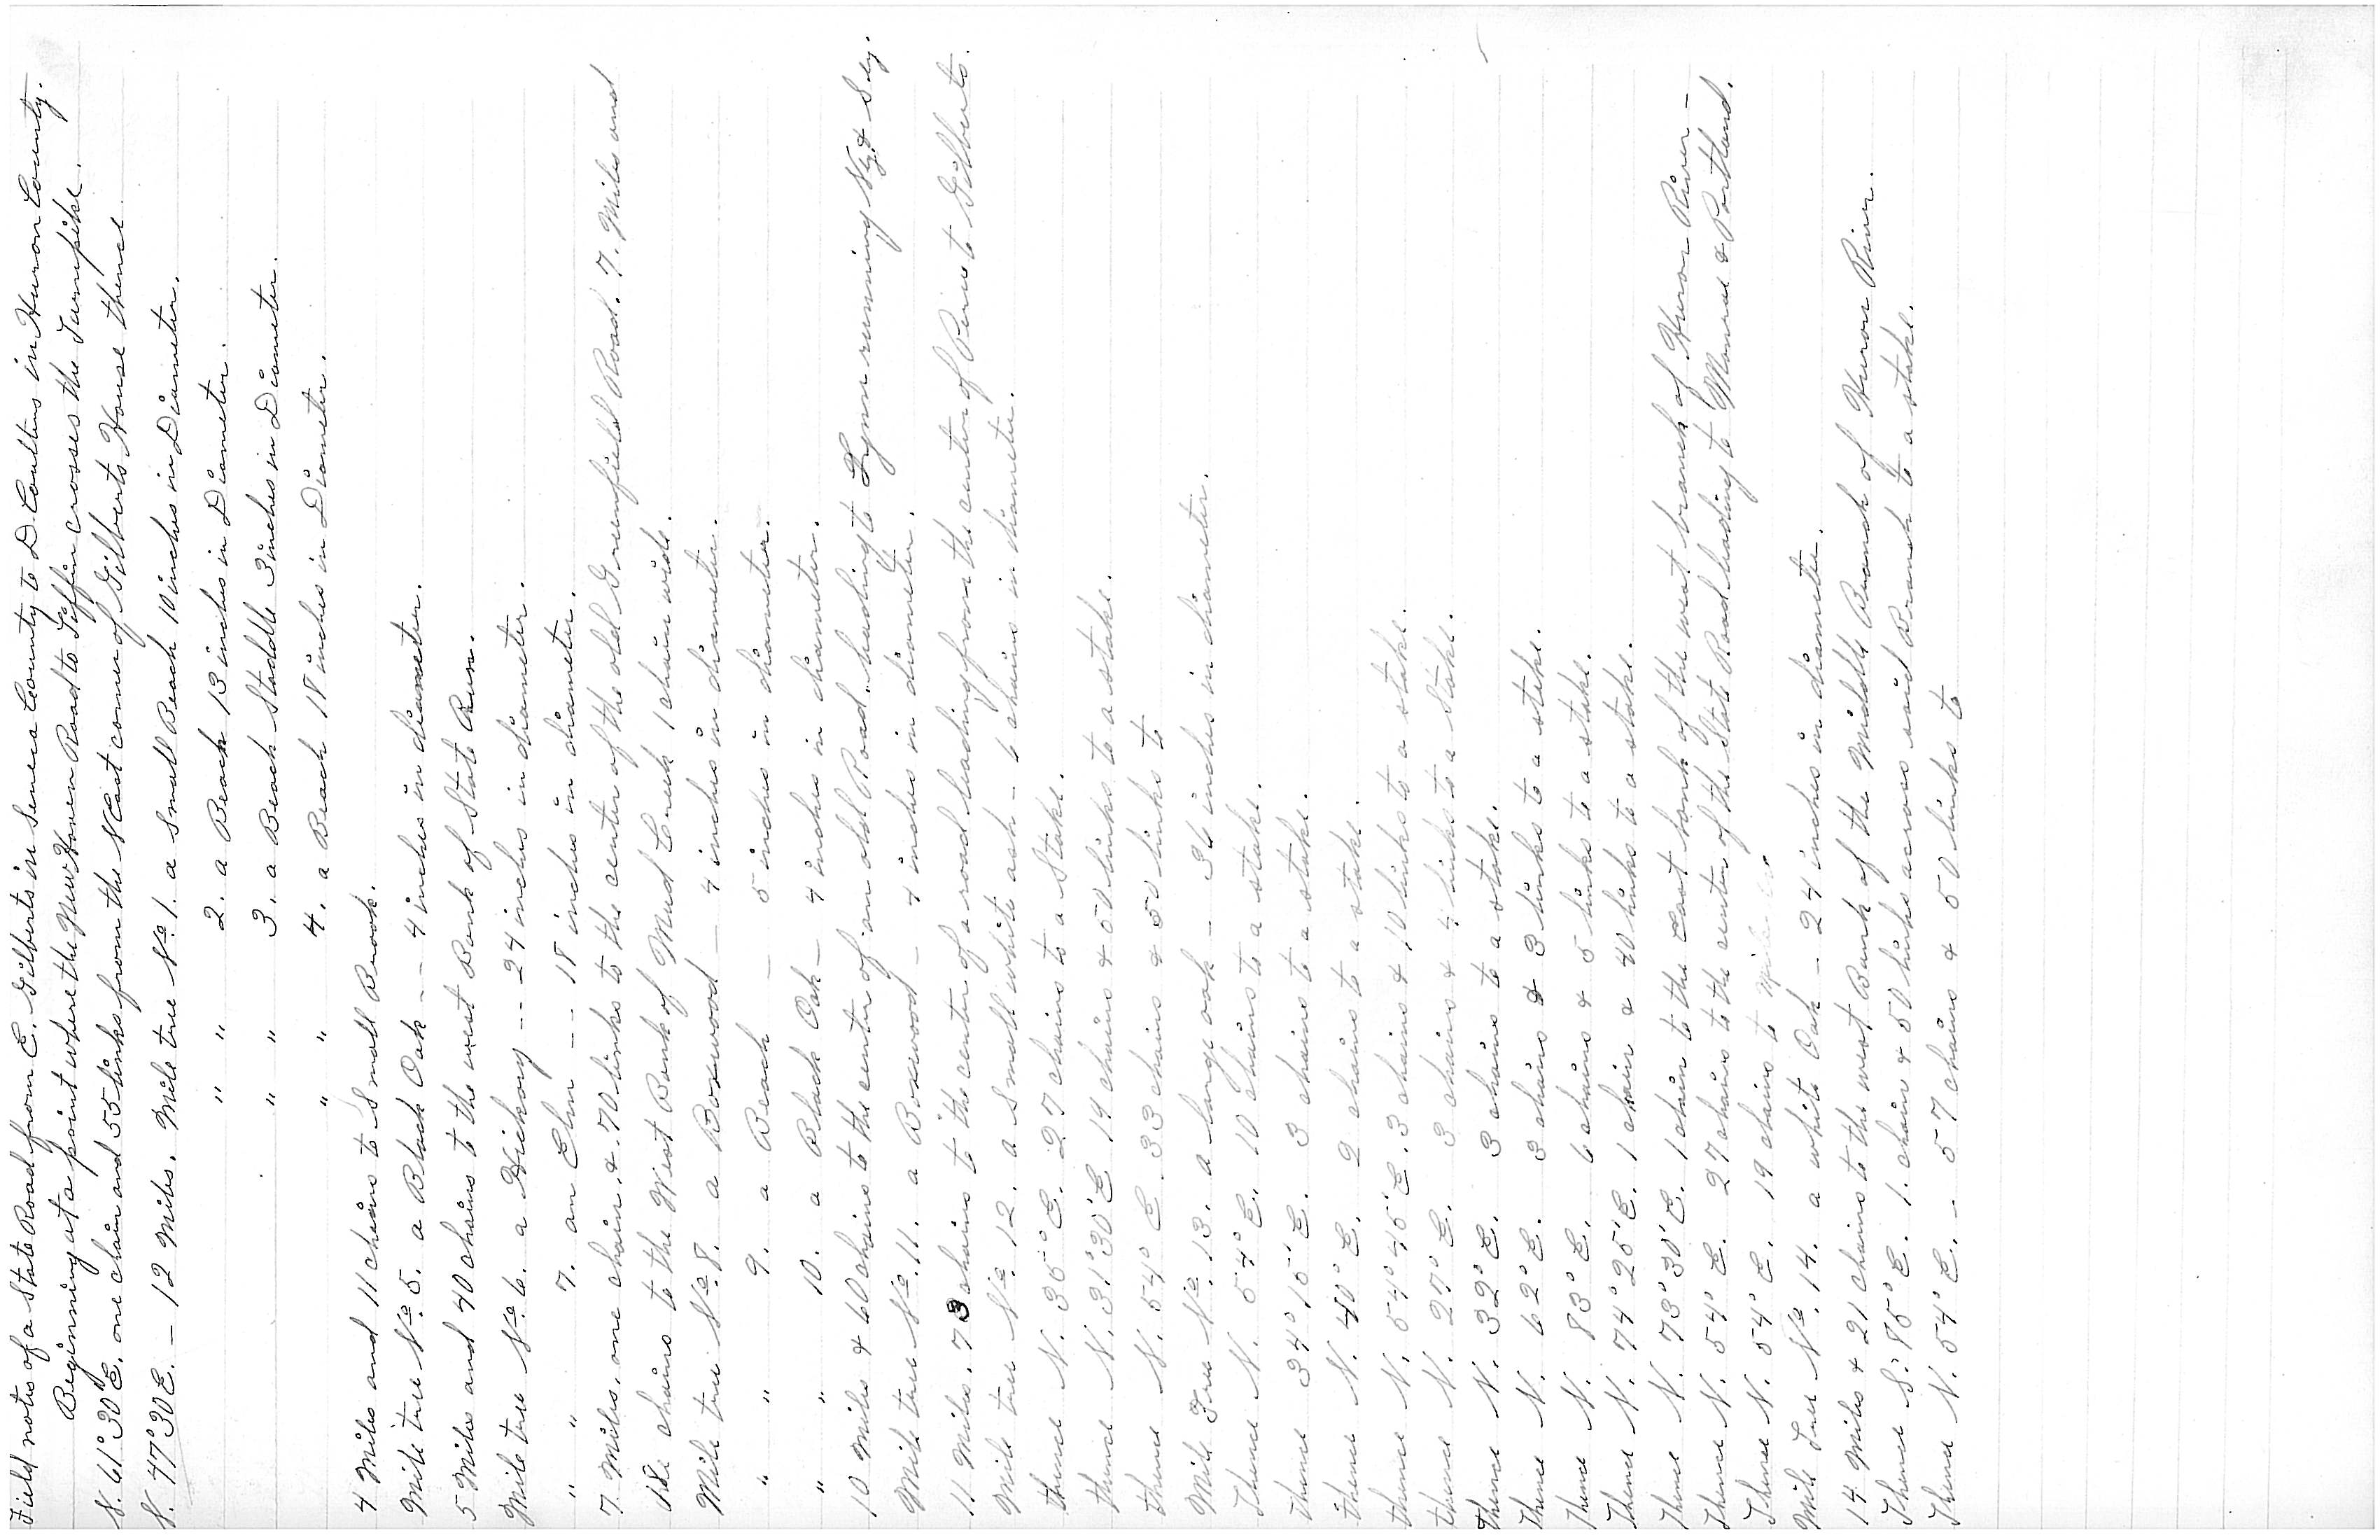 Field notes of a State Road from E. Gilberts in Seneca County to D. Coulters in Huron County.
Beginning at a point where the New Haven Road to Tiffin crosses the Turnpike.
N. 61° 30' E. one chain and 55 links from the N East corner of Gilberts House thence
N. 47° 30 E. – 12 Miles. Mile tree No 1. a small Beach 10 inches in Diameter.
" " 2. a Beach 13 inches in Diameter.
" " 3. a Beach Staddle 3 inches in Diameter.
" " 4. a Beach 18 inches in Diameter.
4 Miles and 11 chains to Small Brook.
Mile tree No 5. a Black Oak – – 4 inches in diameter.
5 Miles and 40 chains to the west Bank of State Run.
Mile tree No 6. a Hickory – – 24 inches in diameter.
" " 7. an Elm – – 18 inches in diameter.
7. Miles, one chain & 70 links to the center of the old Greenfield Road. 7. Miles and
chains to the West Bank of Mud Creek 1 chain wide.
Mile tree No 8. a Boxwood – 4 inches in diameter.
" " 9. a Beach – 5 inches in diameter.
" " 10. a Black Oak – 4 inches in diameter.
10 Miles & 60 chains to the center of an old Road, heading to Lyme running Ny. & Sly.
Mile tree No. 11. a Boxwood – 4 inches in diameter.
11 Miles. 73 chains to the center of a road leading from the center of Peru to Gilberts.
Mile tree No. 12. a Small white ash – 6 chains in diameter.
thence N. 35° E. 27 chains to a Stake.
thence N. 31° 30' E 19 chains & 50 links to a stake.
thence N. 54° E. 33 chains & 50 links to
Mile Tree No. 13. a large oak – 36 inches in diameter.
Thence N. 54° E. 10 chains to a stake.
Thence 34° 15' E. 3 chains to a stake.
Thence N. 40° E. 2 chains to a stake.
thence N. 54° 45' E. 3 chains & 10 links to a stake.
thence N. 27° E. 3 chains & 4 links to a Stake.
thence N. 32° E. 3 chains to a stake.
Thence N. 62° E. 3 chains & 3 links to a stake.
thence N. 83° E. 6 chains & 5 links to a stake.
Thence N. 74° 25' E. 1 chain & 40 links to a stake.
Thence N. 73° 30' E. 1 chain to the East bank of the west branch of Huron River –
Thence N. 54° E. 27 chains to the center of the State Road leading to Monroe & Portland.
Thence N. 54° E. 19 chains to
Mile Tree No. 14. a white Oak – 24 inches in diameter.
14 Miles & 21 chains to the west Bank of the Middle Branch of Huron River.
Thence S. 85° E. 1. chain & 50 links across said Branch to a stake.
Thence N. 54° E. – 57 chains & 50 links to